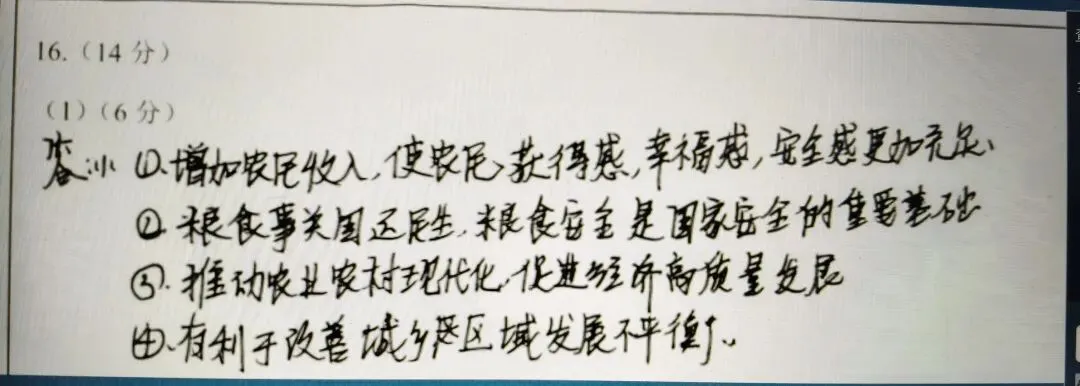 16.（14 分）
（1）（6 分）
答:(1) ①.增加农民收入,使农民获得感,幸福感,安全感更加充足、
② 粮食事关国运民生,粮食安全是国家安全的重要基础
③.推动农业农村现代化,促进经济高质量发展
④.有利于改善城乡区域发展不平衡、